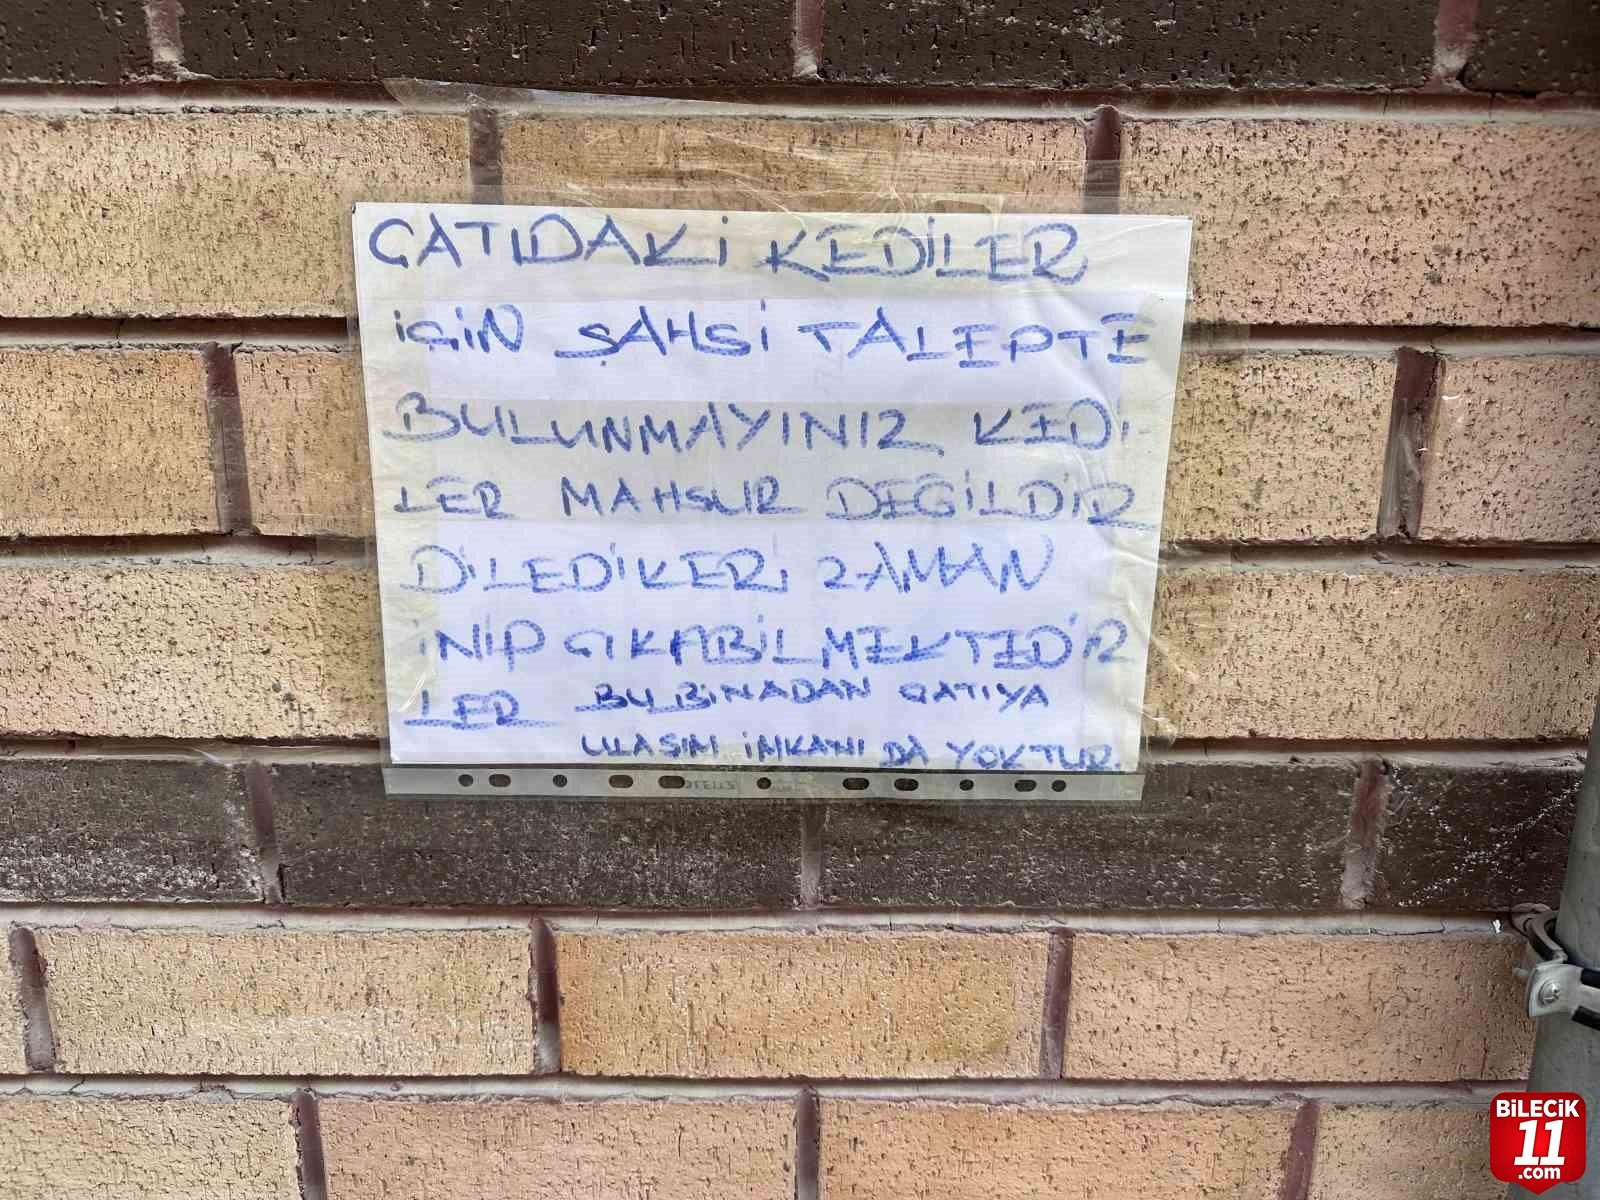 ÇATIDAKİ KEDİLER
İÇİN ŞAHSİ TALEPTE
BULUNMAYINIZ KEDİ-
LER MAHSUR DEĞİLDİR
DİLEDİKERİ ZAMAN
İNİP ÇIKABİLMEKTEDİR
LER BU BİNADAN ÇATIYA
ULAŞIM İMKANI DA YOKTUR.
BİLECİK
11
.com